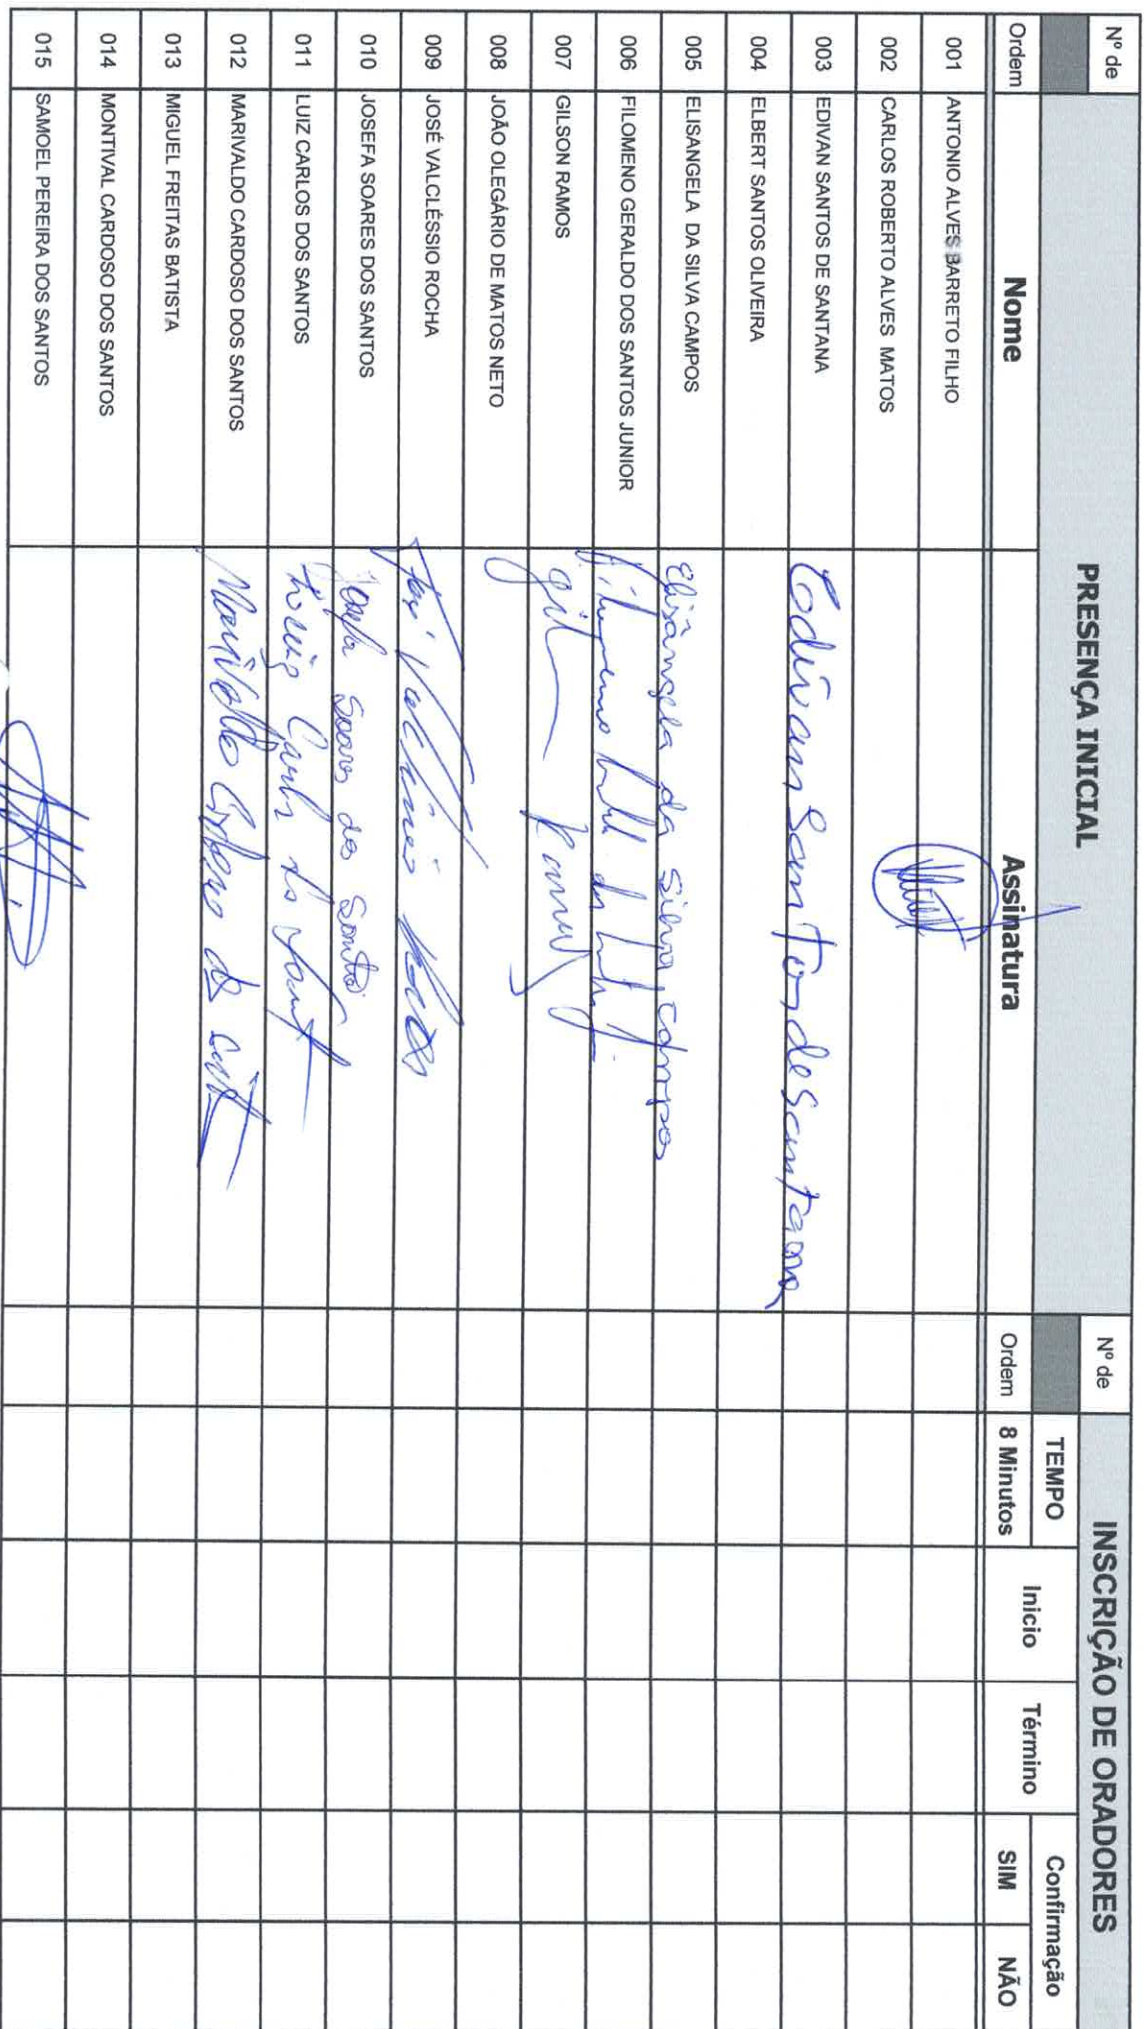 Nº de PRESENÇA INICIAL Nº de INSCRIÇÃO DE ORADORES
TEMPO Confirmação
Ordem Nome Assinatura Ordem 8 Minutos Inicio Término SIM NÃO
001 ANTONIO ALVES BARRETO FILHO
002 CARLOS ROBERTO ALVES MATOS
003 EDIVAN SANTOS DE SANTANA Edivan Santos de Santana
004 ELBERT SANTOS OLIVEIRA
005 ELISANGELA DA SILVA CAMPOS Elisângela da Silva Campos
006 FILOMENO GERALDO DOS SANTOS JUNIOR
007 GILSON RAMOS Gil Ramos
008 JOÃO OLEGÁRIO DE MATOS NETO
009 JOSÉ VALCLÉSSIO ROCHA José Rocha
010 JOSEFA SOARES DOS SANTOS Josefa Soares dos Santos
011 LUIZ CARLOS DOS SANTOS Carlos
012 MARIVALDO CARDOSO DOS SANTOS Marivaldo
013 MIGUEL FREITAS BATISTA
014 MONTIVAL CARDOSO DOS SANTOS
015 SAMOEL PEREIRA DOS SANTOS